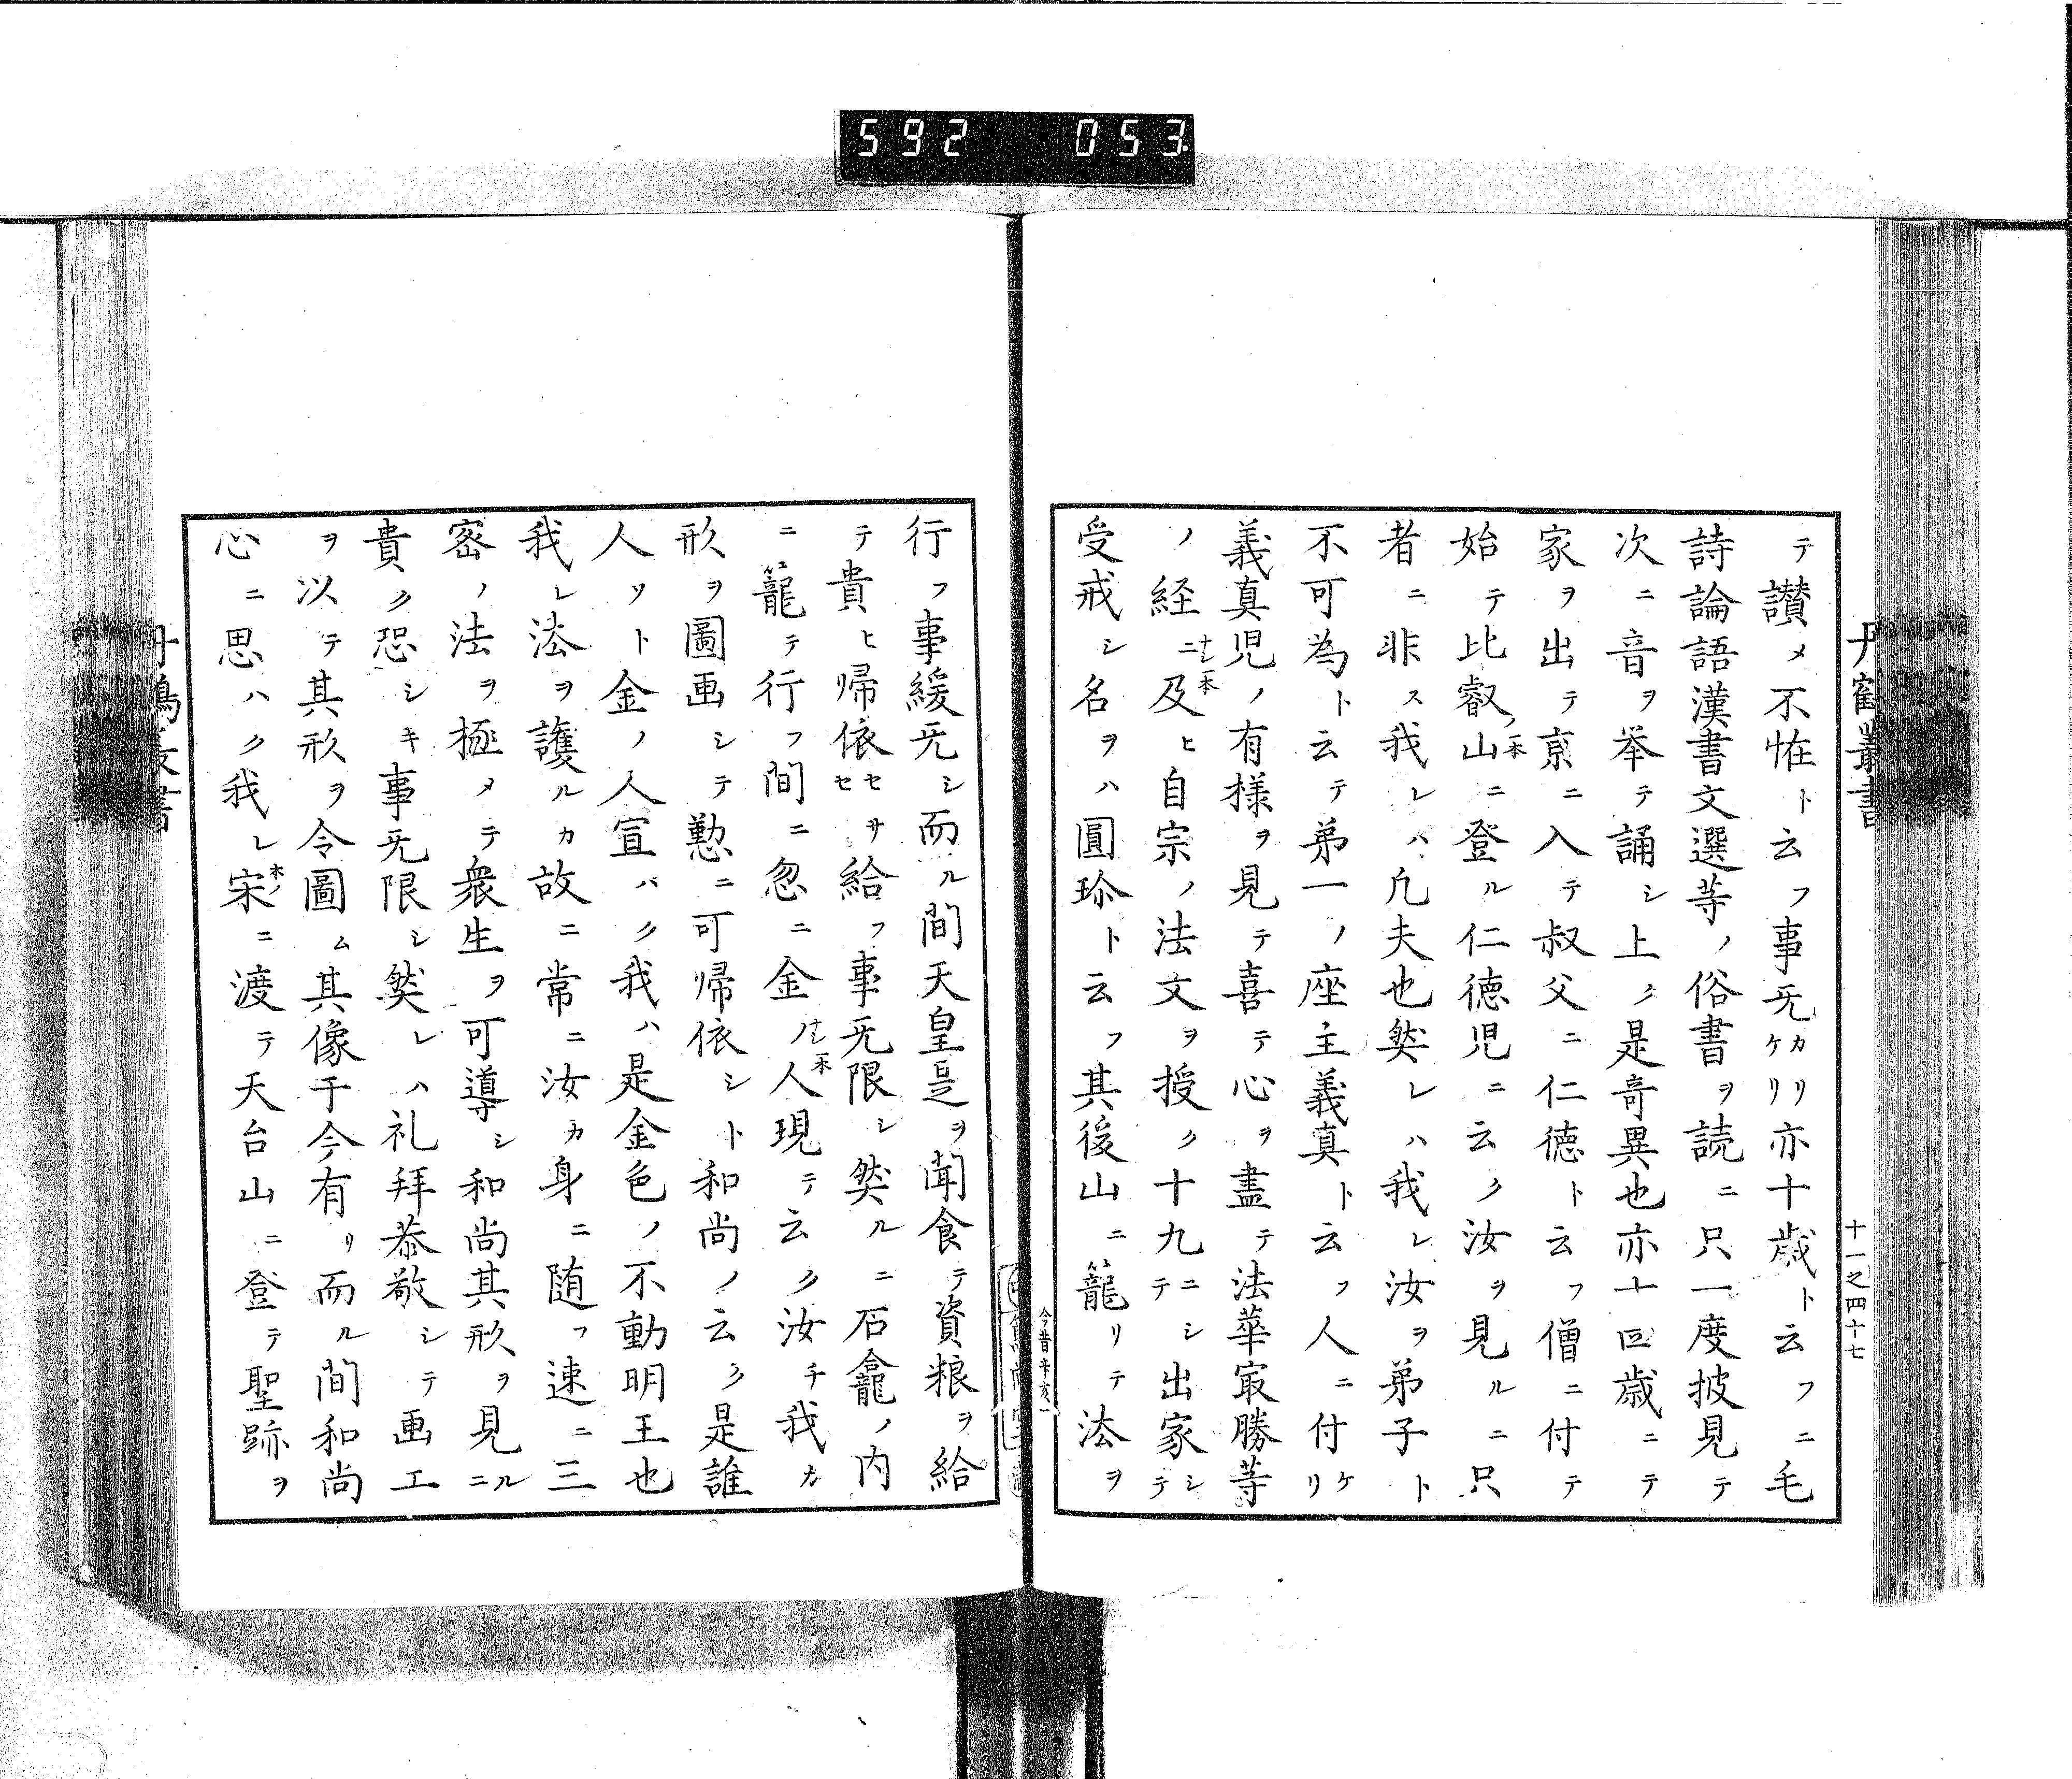 592 053
丹鶴叢書
十一之四十七
テ讃メ不恠ト云フ事无カリケリ亦十歳ト云フニ毛
詩論語漢書文選等ノ俗書ヲ読ニ只一度披見テ
次ニ音ヲ挙テ誦シ上ク是奇異也亦十四歳ニテ
家ヲ出テ京ニ入テ叔父ニ仁徳ト云フ僧ニ付テ
始テ比叡ノ一本山ニ登ル仁徳児ニ云ク汝ヲ見ルニ只
者ニ非ス我レハ凡夫也然レハ我レ汝ヲ弟子ト
不可為ト云テ弟一ノ座主義真ト云フ人ニ付ケリ
義真児ノ有様ヲ見テ喜テ心ヲ盡テ法華寂勝等
ノ経ニナシ一本及ヒ自宗ノ法文ヲ授ク十九ニシテ出家シテ
受戒シ名ヲハ圓珎ト云フ其後山ニ籠リテ法ヲ
今昔辛亥一
行フ事緩无シ而ル間天皇是ヲ聞食テ資粮ヲ給
テ貴ヒ帰依セセサ給フ事无限シ然ルニ石龕ノ内
ニ籠テ行フ間ニ忽ニ金ノナシ一本人現テ云ク汝チ我カ
形ヲ圖画シテ懃ニ可帰依シト和尚ノ云ク是誰
人ソト金ノ人宣バク我ハ是金色ノ不動明王也
我レ法ヲ護ルカ故ニ常ニ汝カ身ニ随フ速ニ三
密ノ法ヲ極メテ衆生ヲ可導シ和尚其形ヲ見ルニ
貴ク恐シキ事无限シ然レハ礼拜恭敬シテ画工
ヲ以テ其形ヲ令圖ム其像于今有リ而ル間和尚
心ニ思ハク我レ宋本ノニ渡テ天台山ニ登テ聖跡ヲ